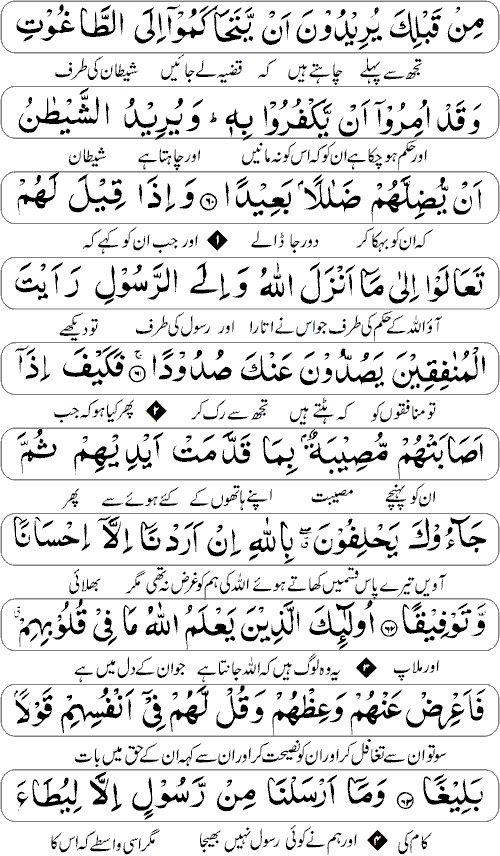 مِنْ قَبْلِكَ يُرِيْدُوْنَ اَنْ يَّتَحَاكَمُوْٓا اِلَى الطَّاغُوْتِ
تجھ سے پہلے چاہتے ہیں کہ قضیہ لے جائیں شیطان کی طرف
وَقَدْ اُمِرُوْٓا اَنْ يَّكْفُرُوْا بِهٖ ؕ وَيُرِيْدُ الشَّيْطٰنُ
اور حکم ہو چکا ہے ان کو کہ اس کو نہ مانیں اور چاہتا ہے شیطان
اَنْ يُّضِلَّهُمْ ضَلٰلًاۢ بَعِيْدًا ﴿۶۰﴾ وَاِذَا قِيْلَ لَهُمْ
کہ ان کو بہکا کر دور جا ڈالے ۱ اور جب ان کو کہے کہ
تَعَالَوْا اِلٰى مَآ اَنْزَلَ اللّٰهُ وَاِلَى الرَّسُوْلِ رَاَيْتَ
آؤ اللہ کے حکم کی طرف جو اس نے اتارا اور رسول کی طرف تو دیکھے
الْمُنٰفِقِيْنَ يَصُدُّوْنَ عَنْكَ صُدُوْدًا ﴿۶۱﴾ فَكَيْفَ اِذَآ
تو منافقوں کو کہ ہٹتے ہیں تجھ سے رک کر ۲ پھر کیا ہو کہ جب
اَصَابَتْهُمْ مُّصِيْبَةٌۢ بِمَا قَدَّمَتْ اَيْدِيْهِمْ ثُمَّ
ان کو پہنچے مصیبت اپنے ہاتھوں کے کئے ہوئے سے پھر
جَآءُوْكَ يَحْلِفُوْنَ ۖ بِاللّٰهِ اِنْ اَرَدْنَآ اِلَّآ اِحْسَانًا
آویں تیرے پاس قسمیں کھاتے ہوئے اللہ کی ہم کو غرض نہ تھی مگر بھلائی
وَّتَوْفِيْقًا ﴿۶۲﴾ اُولٰٓئِكَ الَّذِيْنَ يَعْلَمُ اللّٰهُ مَا فِيْ قُلُوْبِهِمْ ۗ
اور ملاپ ۳ یہ وہ لوگ ہیں کہ اللہ جانتا ہے جو ان کے دل میں ہے
فَاَعْرِضْ عَنْهُمْ وَعِظْهُمْ وَقُلْ لَّهُمْ فِيْٓ اَنْفُسِهِمْ قَوْلًاۢ
سو تو ان سے تغافل کر اور ان کو نصیحت کر اور ان سے کہہ ان کے حق میں بات
بَلِيْغًا ﴿۶۳﴾ وَمَآ اَرْسَلْنَا مِنْ رَّسُوْلٍ اِلَّا لِيُطَاعَ
کام کی ۴ اور ہم نے کوئی رسول نہیں بھیجا مگر اسی واسطے کہ اس کا